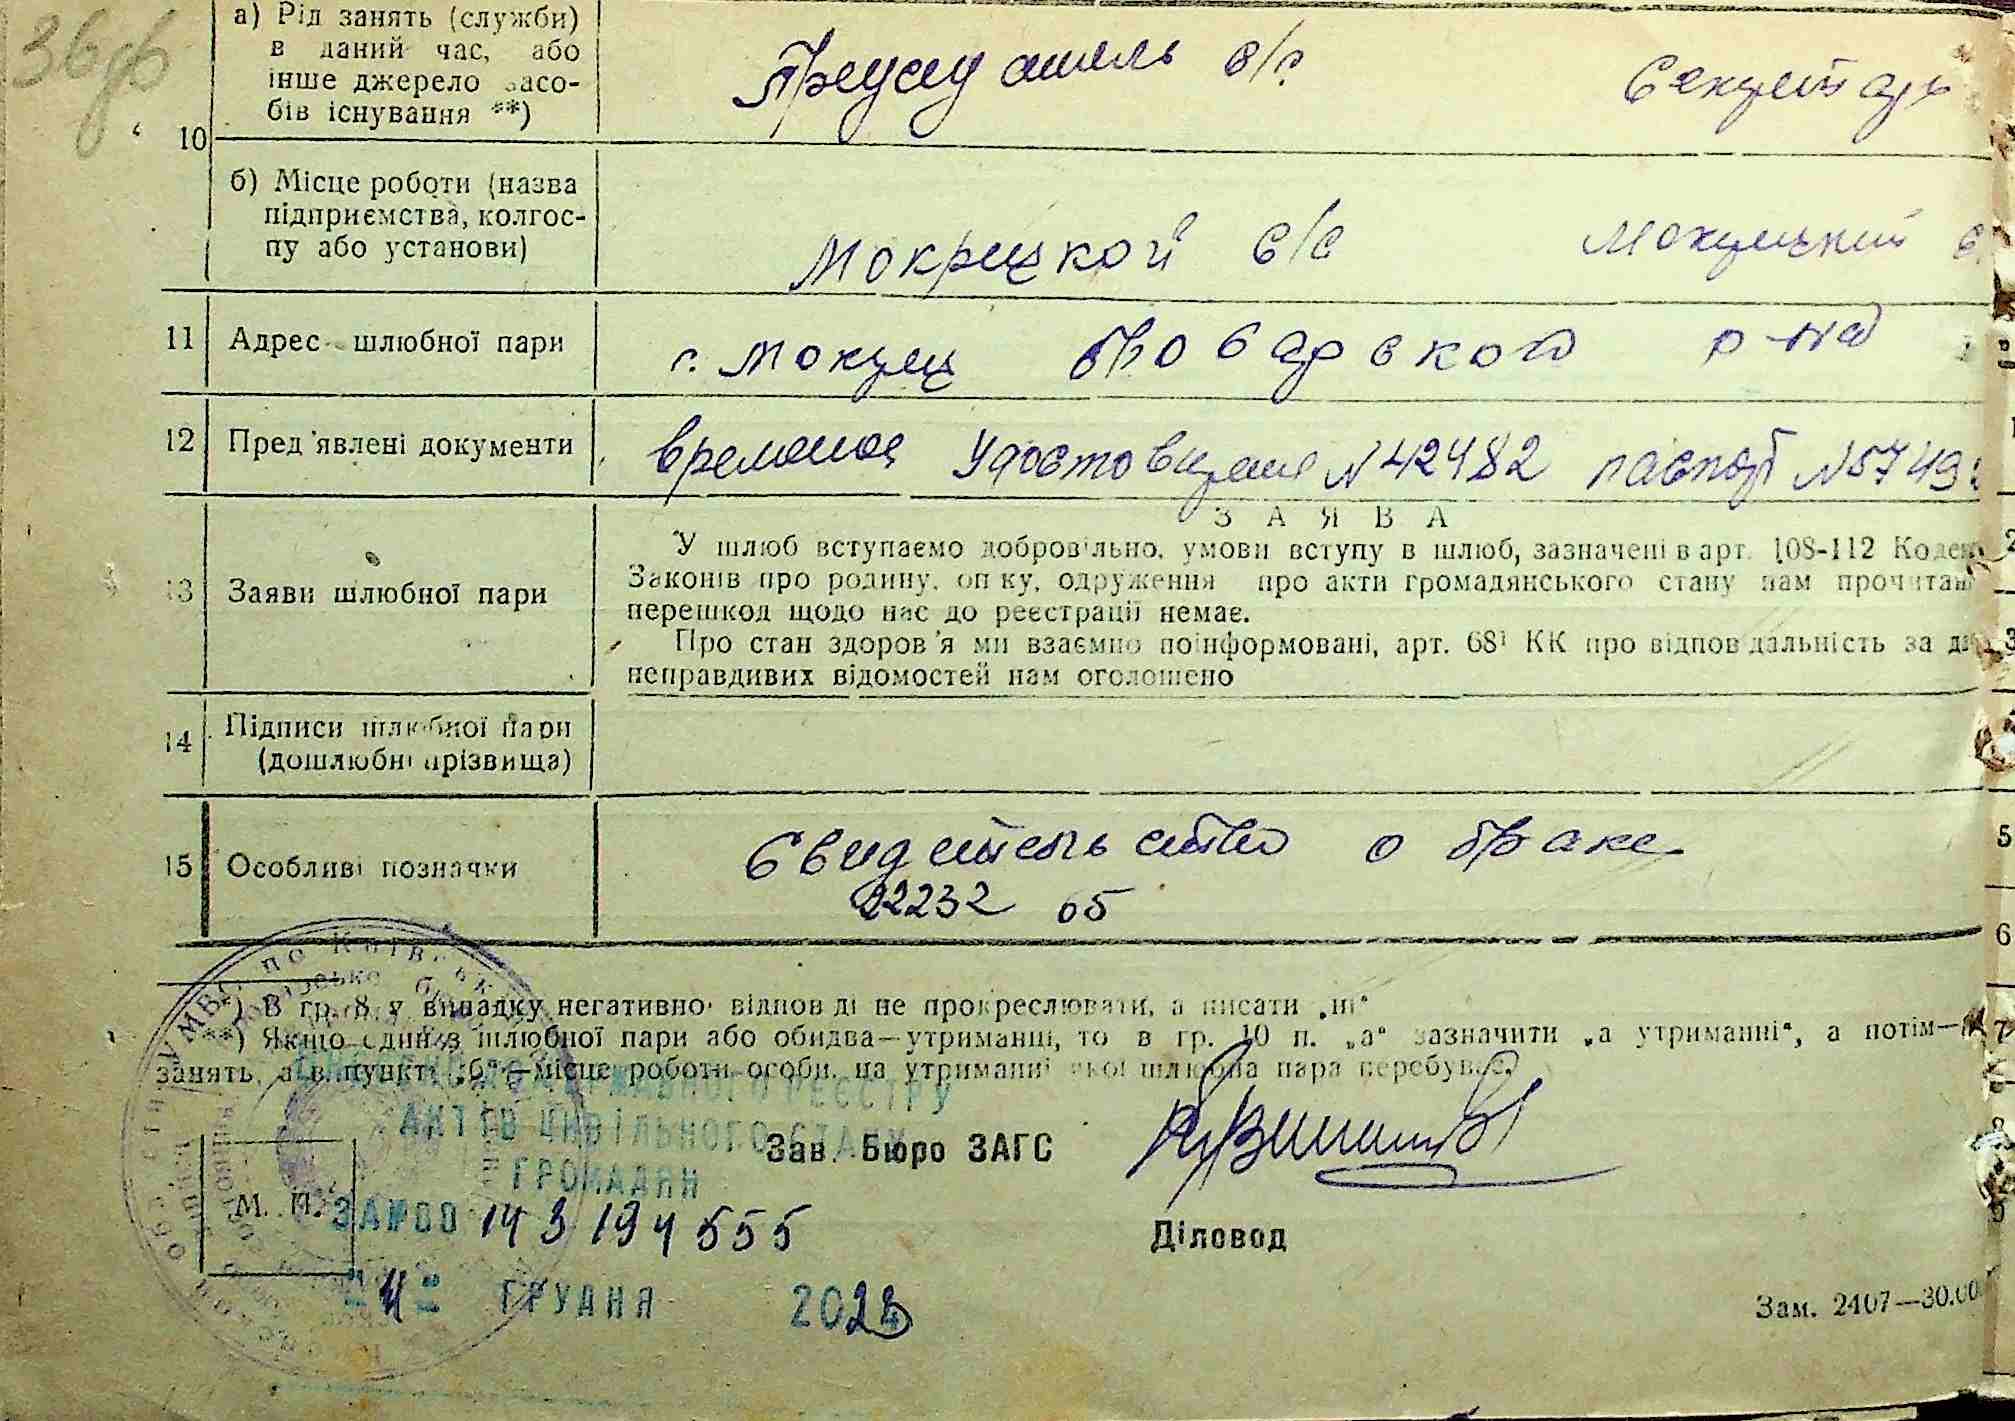 а) Рід занять (служби)
в даний час, або
інше джерело засо-
бів існування **)
Председатель с/с Секретарь
10
б) Місце роботи (назва
підприємства, колгос-
пу або установи)
Мокрецкой с/с Мокрецкий
11 Адрес шлюбної пари с. Мокрец Броварского р-на
12 Пред'явлені документи временое Удостоверение N 42482 паспорт N 5749
ЗАЯВА
У шлюб вступаємо добровільно, умови вступу в шлюб, зазначені в арт. 108-112 Кодек
Законів про родину, опіку, одруження про акти громадянського стану нам прочитан
перешкод щодо нас до реєстрації немає.
13 Заяви шлюбної пари
Про стан здоров'я ми взаємно поінформовані, арт. 68¹ КК про відповідальність за да
неправдивих відомостей нам оголошено
14 Підписи шлюбної пари
(дошлюбні прізвища)
15 Особливі позначки Свидетельство о браке
22232 05
*) В гр. 8 у випадку негативної відповіді не прокреслювати, а писати „ні“
**) Якщо один з шлюбної пари або обидва—утриманці, то в гр. 10 п. „а“ зазначити „а утриманні“, а потім—
занять, а в пункті „б“—місце роботи особи, на утриманні якої шлюбна пара перебуває.
ДЕРЖАВНОГО РЕЄСТРУ
АКТІВ ЦИВІЛЬНОГО СТАНУ
ГРОМАДЯН
Зав. Бюро ЗАГС
М. П.
Діловод
ГРУДНЯ
Зам. 2407—30.00